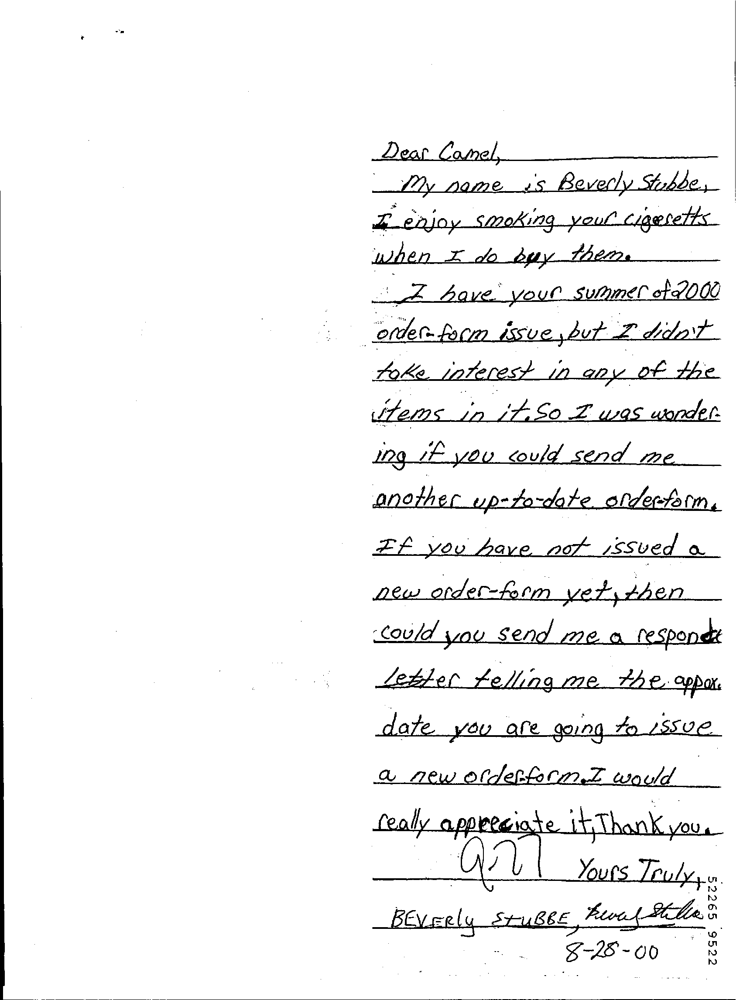 Dear Camel,
My name is Beverly Stubbe,
I enjoy smoking your cigaretts
when I do buy them.
I have your summer of 2000
order-form issue, but I didn't
take interest in any of the
items in it. So I was wonder-
ing if you could send me
another up-to-date order-form.
If you have not issued a
new order-form yet, then
could you send me a respond
letter telling me the appox.
date you are going to issue
a new order-form. I would
really appreciate it, Thank you.
Yours Truly,
BEVERly STUBBE,
8-28-00
52265 9522